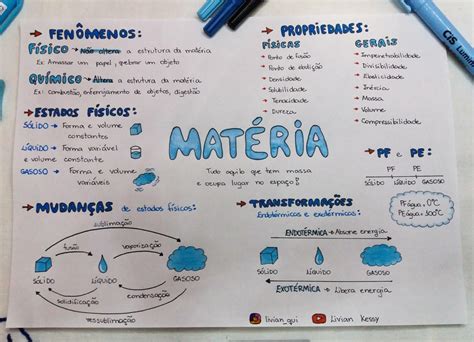 → FENÔMENOS:
FÍSICO → Não altera a estrutura da matéria
Ex: Amassar um papel, quebrar um objeto
QUÍMICO → Altera a estrutura da matéria
Ex: combustão, enferrujamento de objetos, digestão
→ ESTADOS FÍSICOS:
SÓLIDO → Forma e volume
constantes
LÍQUIDO → Forma variável
e volume constante
GASOSO → Forma e volume
variáveis
MATÉRIA
Tudo aquilo que tem massa
e ocupa lugar no espaço!
→ PROPRIEDADES:
FÍSICAS
• Ponto de fusão
• Ponto de ebulição
• Densidade
• Solubilidade
• Tenacidade
• Dureza
GERAIS
• Impenetrabilidade
• Divisibilidade
• Elasticidade
• Inércia
• Massa
• Volume
• Compressibilidade
→ PF e PE:
PF PE
SÓLIDO LÍQUIDO GASOSO
PF água = 0°C
PE água = 100°C
→ MUDANÇAS de estados físicos:
sublimação
fusão
vaporização
SÓLIDO
LÍQUIDO
GASOSO
solidificação
condensação
ressublimação
→ TRANSFORMAÇÕES
Endotérmicas e exotérmicas:
ENDOTÉRMICA → Absorve energia
SÓLIDO
LÍQUIDO
GASOSO
EXOTÉRMICA → Libera energia
livian_qui
Livian Kessy
CiS